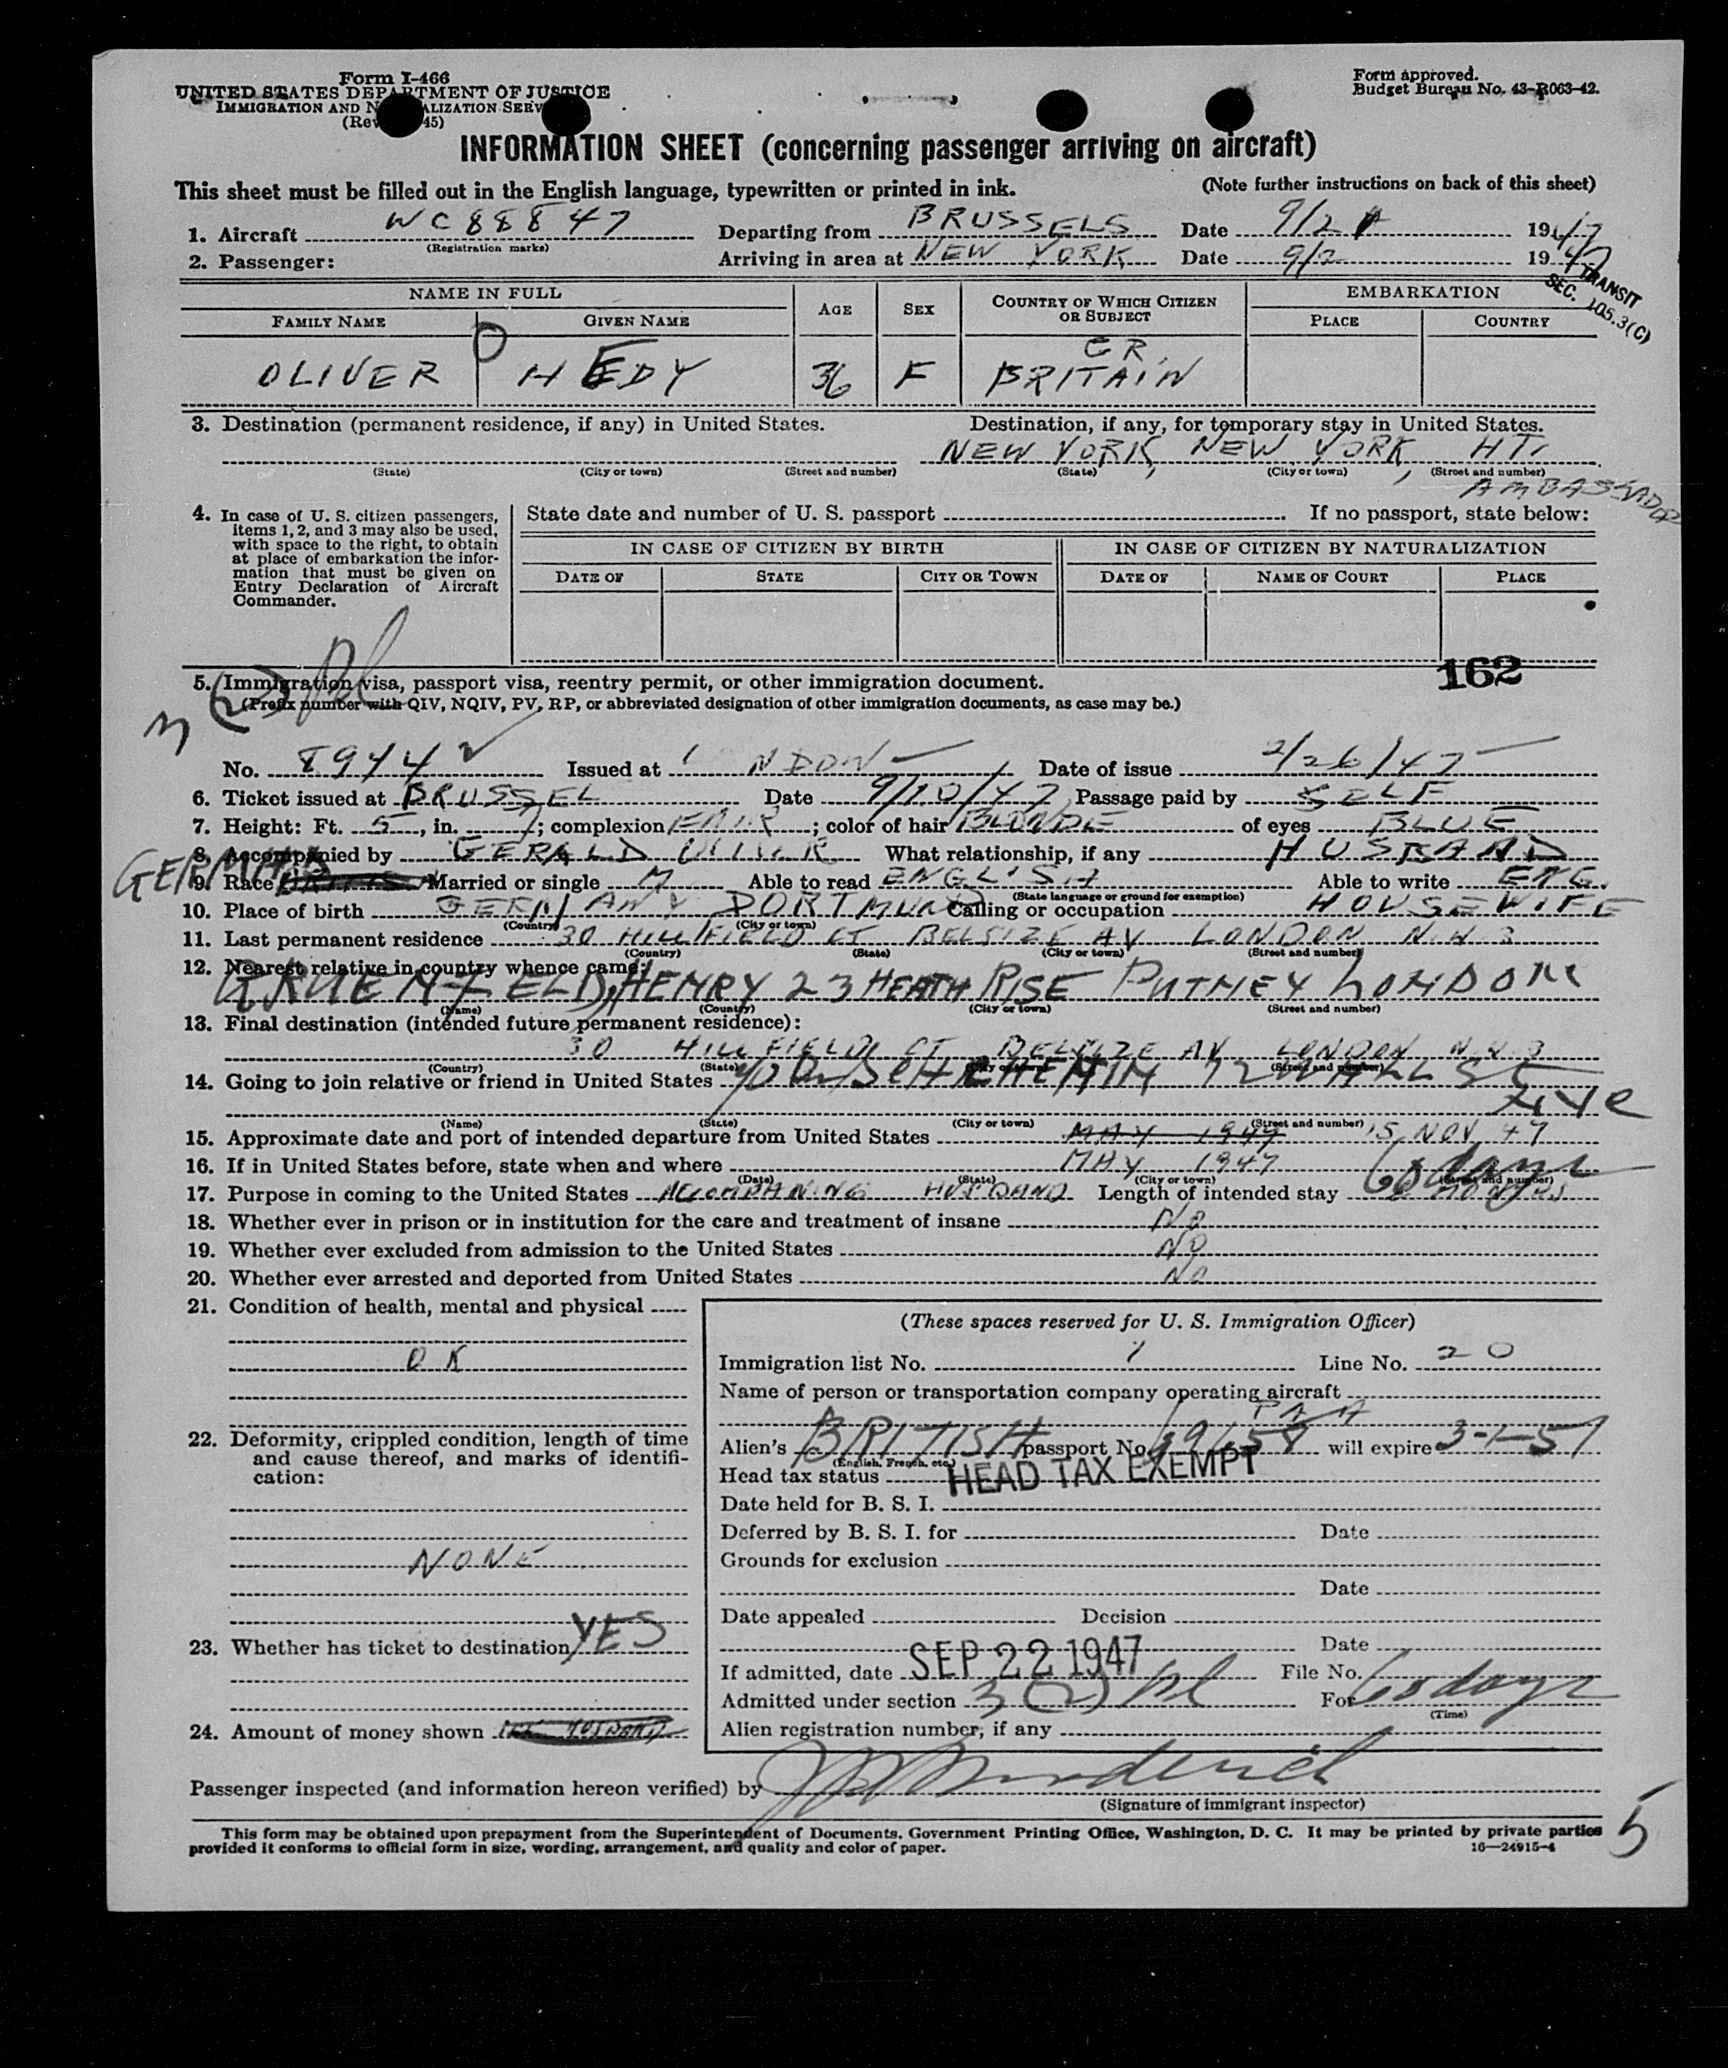 Form I-466
UNITED STATES DEPARTMENT OF JUSTICE
IMMIGRATION AND NATURALIZATION SERVICE
Form approved.
Budget Bureau No. 43-R063-42.
INFORMATION SHEET (concerning passenger arriving on aircraft)
This sheet must be filled out in the English language, typewritten or printed in ink. (Note further instructions on back of this sheet)
1. Aircraft WC 88847 Departing from BRUSSELS Date 9/21 1947
(Registration marks)
2. Passenger: Arriving in area at NEW YORK Date 9/2 1947
TRANSIT
SEC. 105.3(C)
NAME IN FULL AGE SEX COUNTRY OF WHICH CITIZEN OR SUBJECT EMBARKATION
FAMILY NAME GIVEN NAME PLACE COUNTRY
OLIVER HEDY 36 F GR. BRITAIN
3. Destination (permanent residence, if any) in United States. Destination, if any, for temporary stay in United States.
NEW YORK, NEW YORK, HT.
(State) (City or town) (Street and number) (State) (City or town) (Street and number)
AMBASSADOR
4. In case of U. S. citizen passengers, items 1, 2, and 3 may also be used, with space to the right, to obtain at place of embarkation the information that must be given on Entry Declaration of Aircraft Commander.
State date and number of U. S. passport If no passport, state below:
IN CASE OF CITIZEN BY BIRTH IN CASE OF CITIZEN BY NATURALIZATION
DATE OF STATE CITY OR TOWN DATE OF NAME OF COURT PLACE
162
5. Immigration visa, passport visa, reentry permit, or other immigration document.
(Prefix number with QIV, NQIV, PV, RP, or abbreviated designation of other immigration documents, as case may be.)
No. 8944 Issued at LONDON Date of issue 2/26/47
6. Ticket issued at BRUSSEL Date 9/10/47 Passage paid by SELF
7. Height: Ft. 5, in. 7; complexion FAIR; color of hair BLONDE of eyes BLUE
8. Accompanied by GERALD OLIVER What relationship, if any HUSBAND
GERMAN
9. Race BRITISH Married or single M Able to read ENGLISH Able to write ENG.
(State language or ground for exemption)
10. Place of birth GERMANY DORTMUND Calling or occupation HOUSEWIFE
(Country) (City or town)
11. Last permanent residence 30 HILLFIELD CT BELSIZE AV LONDON N.W.3
(Country) (State) (City or town) (Street and number)
12. Nearest relative in country whence came:
GRUENFELD, HENRY 23 HEATH RISE PUTNEY LONDON
(Name) (Country) (City or town) (Street and number)
13. Final destination (intended future permanent residence):
30 HILLFIELD CT BELSIZE AV LONDON N.W.3
(Country) (State) (City or town) (Street and number)
14. Going to join relative or friend in United States 72 WALL ST
NYC
(Name) (State) (City or town) (Street and number)
15. Approximate date and port of intended departure from United States MAY 1947 15 NOV 47
16. If in United States before, state when and where MAY 1947
(Date) (State) (City or town) (Street and number)
17. Purpose in coming to the United States ACCOMPANING HUSBAND Length of intended stay 60 days
18. Whether ever in prison or in institution for the care and treatment of insane NO
19. Whether ever excluded from admission to the United States NO
20. Whether ever arrested and deported from United States NO
21. Condition of health, mental and physical
OK
22. Deformity, crippled condition, length of time and cause thereof, and marks of identification:
NONE
23. Whether has ticket to destination YES
24. Amount of money shown
(These spaces reserved for U. S. Immigration Officer)
Immigration list No. 1 Line No. 20
Name of person or transportation company operating aircraft
PAA
Alien's BRITISH passport No. will expire 3-1-57
(English, French, etc.)
Head tax status HEAD TAX EXEMPT
Date held for B. S. I.
Deferred by B. S. I. for Date
Grounds for exclusion
Date
Date appealed Decision
Date
If admitted, date SEP 22 1947 File No.
Admitted under section 3(2) For 60 days
(Time)
Alien registration number, if any
Passenger inspected (and information hereon verified) by
(Signature of immigrant inspector)
This form may be obtained upon prepayment from the Superintendent of Documents, Government Printing Office, Washington, D. C. It may be printed by private parties
provided it conforms to official form in size, wording, arrangement, and quality and color of paper. 16—24915-4
5